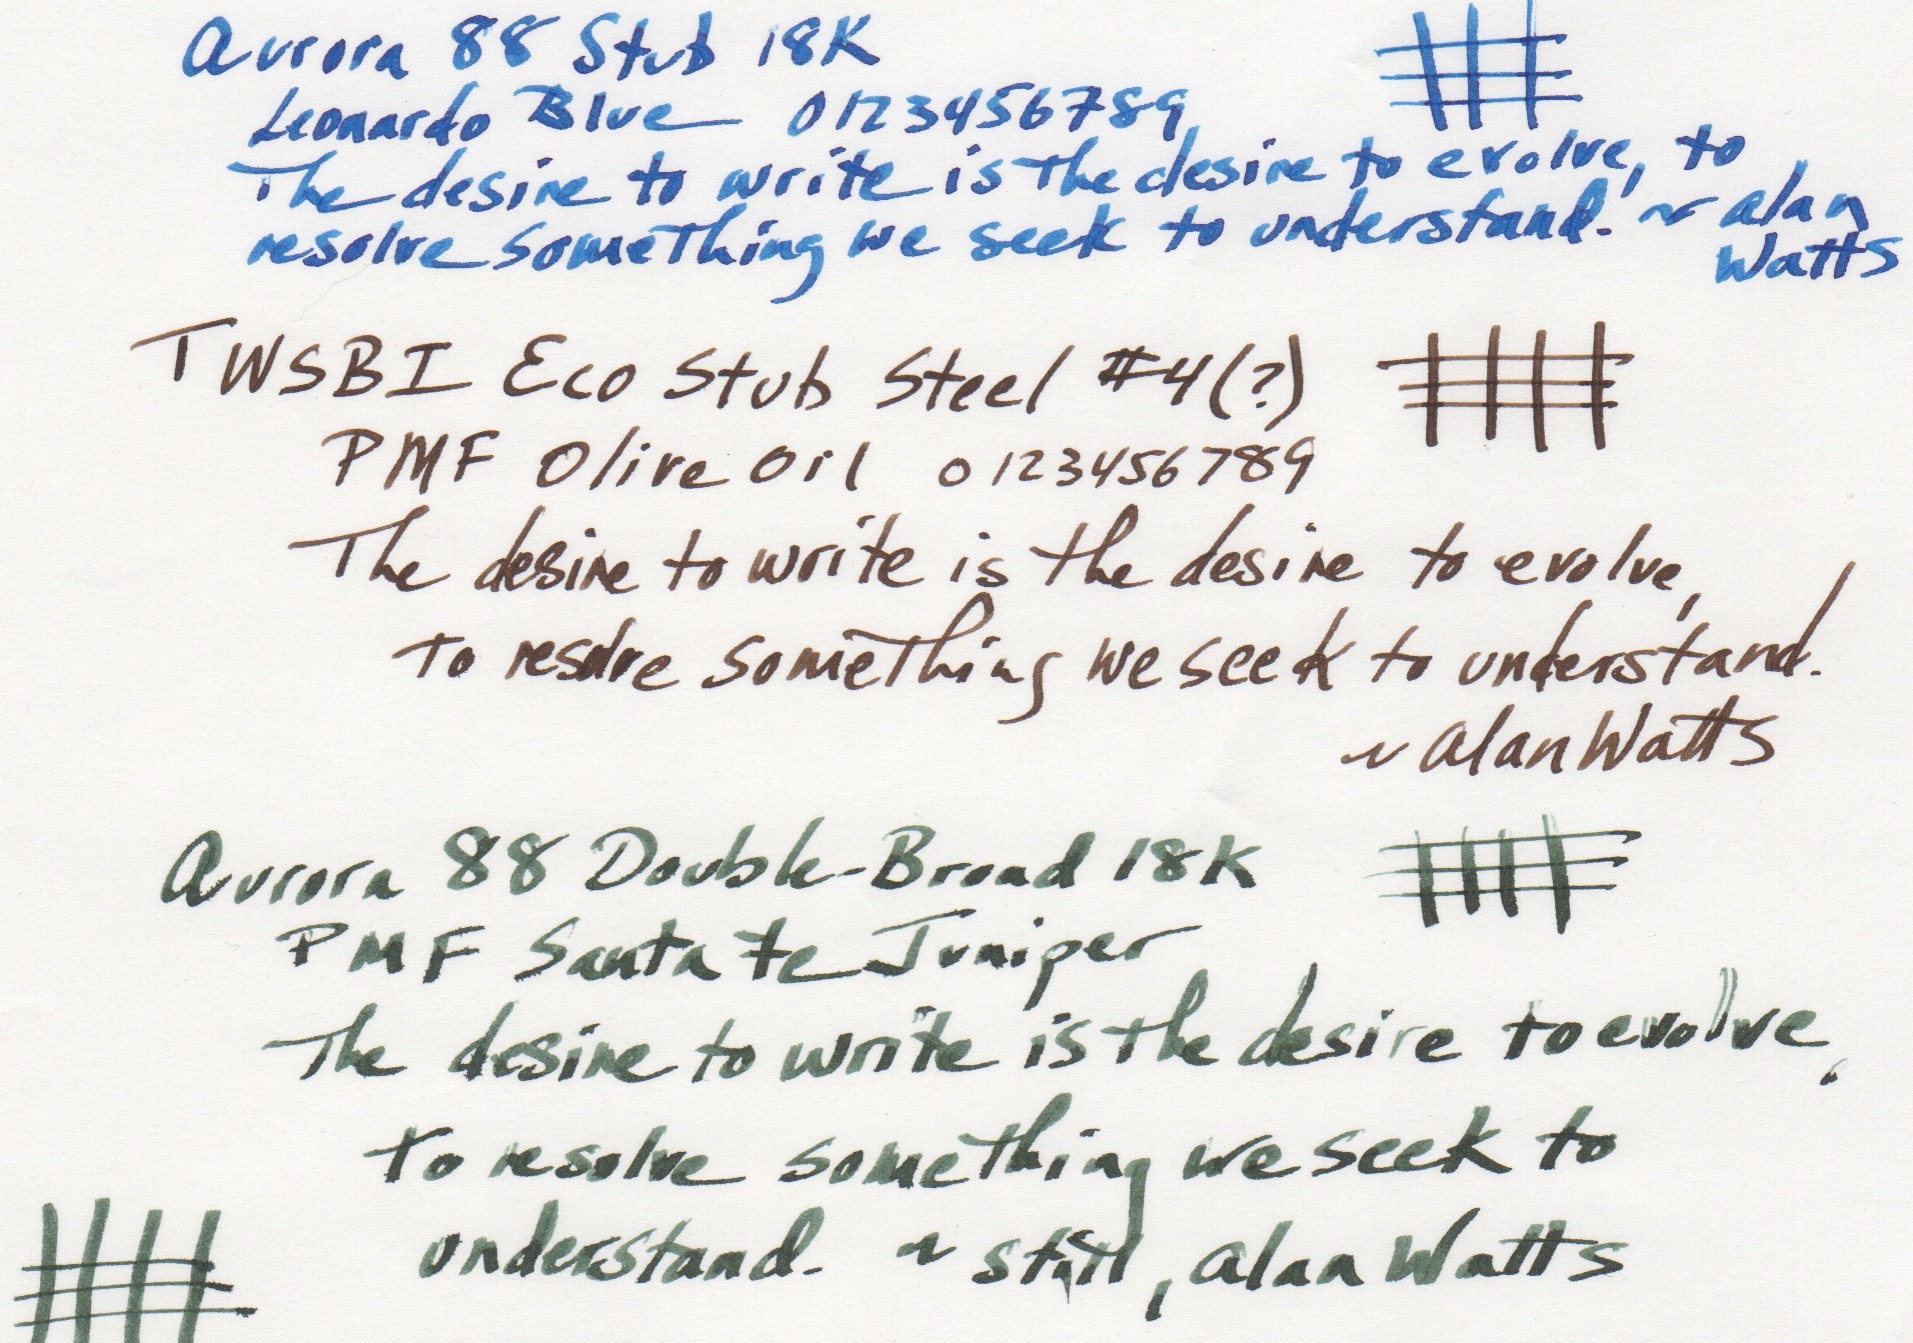 Aurora 88 Stub 18K
Leonardo Blue 0123456789
The desire to write is the desire to evolve, to
resolve something we seek to understand. ~ Alan
Watts
TWSBI Eco Stub Steel #4(?)
PMF Olive Oil 0123456789
The desire to write is the desire to evolve,
to resolve something we seek to understand.
~ Alan Watts
Aurora 88 Double-Broad 18K
PMF Santa Fe Juniper
The desire to write is the desire to evolve,
to resolve something we seek to
understand. ~ still, Alan Watts